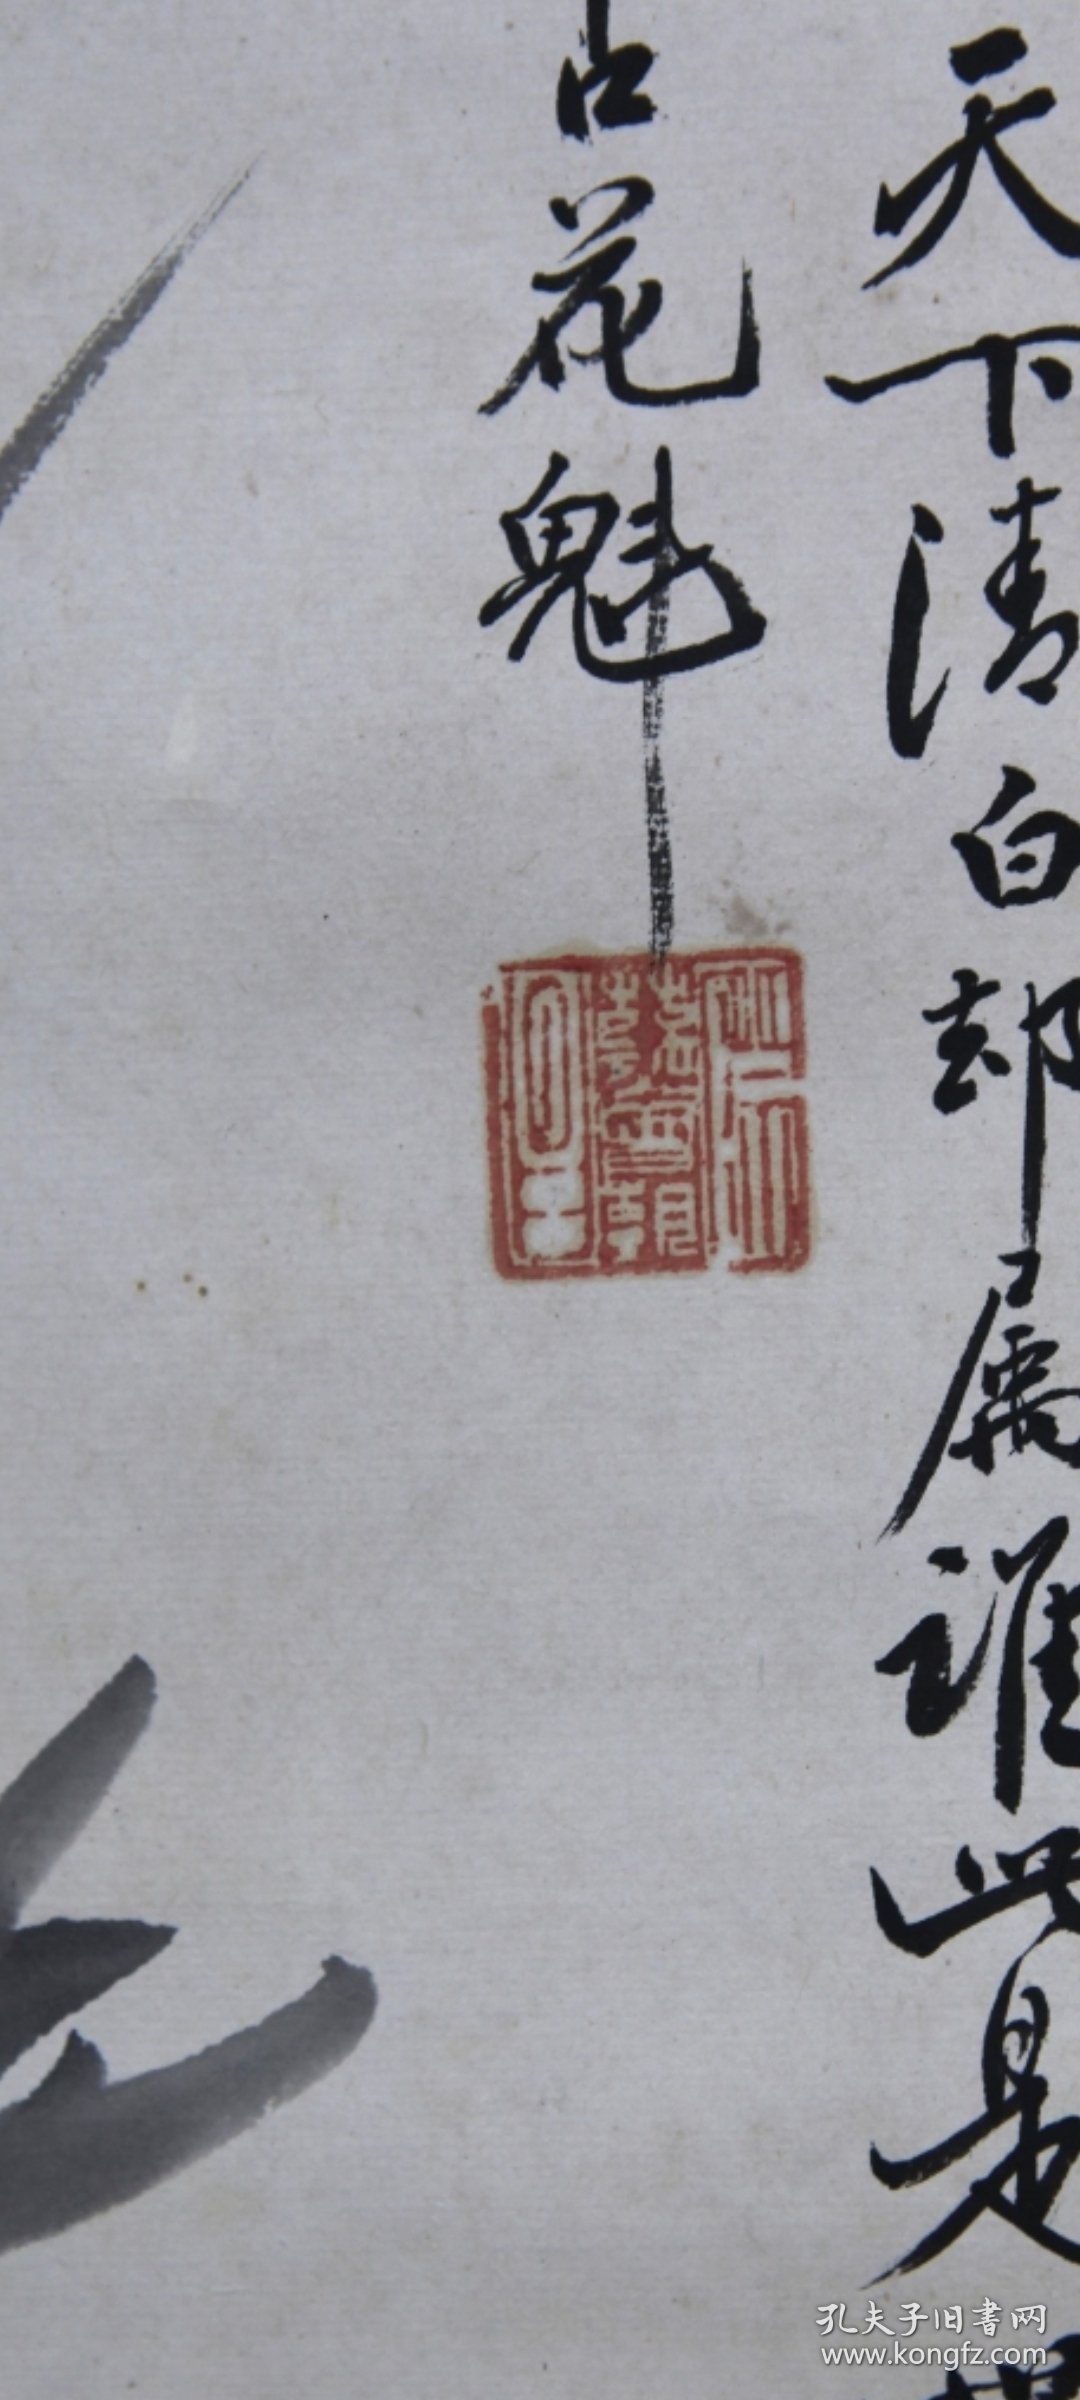 天下清白却属谁此是
占花魁
孔夫子旧書网
www.kongfz.com